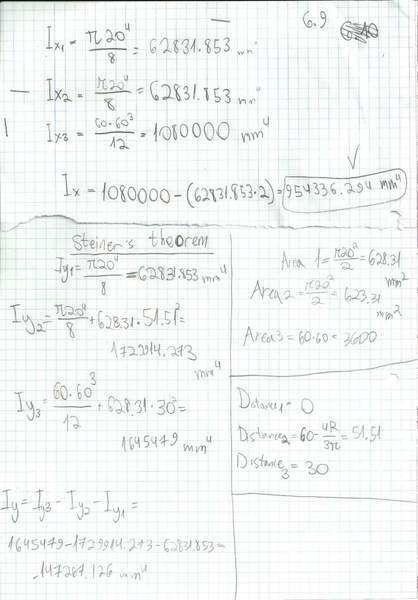 6.9
Ix₁ = π20⁴/8 = 62831.853 mm⁴
Ix₂ = π20⁴/8 = 62831.853 mm⁴
Ix₃ = 60·60³/12 = 1080000 mm⁴
Ix = 1080000 - (62831.853·2) = 954336.294 mm⁴
Steiner's theorem
Iy₁ = π20⁴/8 = 62831.853 mm⁴
Iy₂ = π20⁴/8 + 628.31·51.51² =
1729914.273
mm⁴
Iy₃ = 60·60³/12 + 628.31·30² =
1645479 mm⁴
Iy = Iy₃ - Iy₂ - Iy₁ =
1645479-1729914.273-62831.853=
-147267.126 mm⁴
Area 1 = π20²/2 = 628.31 mm²
Area 2 = π20²/2 = 623.31 mm²
Area 3 = 60·60 = 3600
Distance₁ = 0
Distance₂ = 60 - 4R/3π = 51.51
Distance₃ = 30